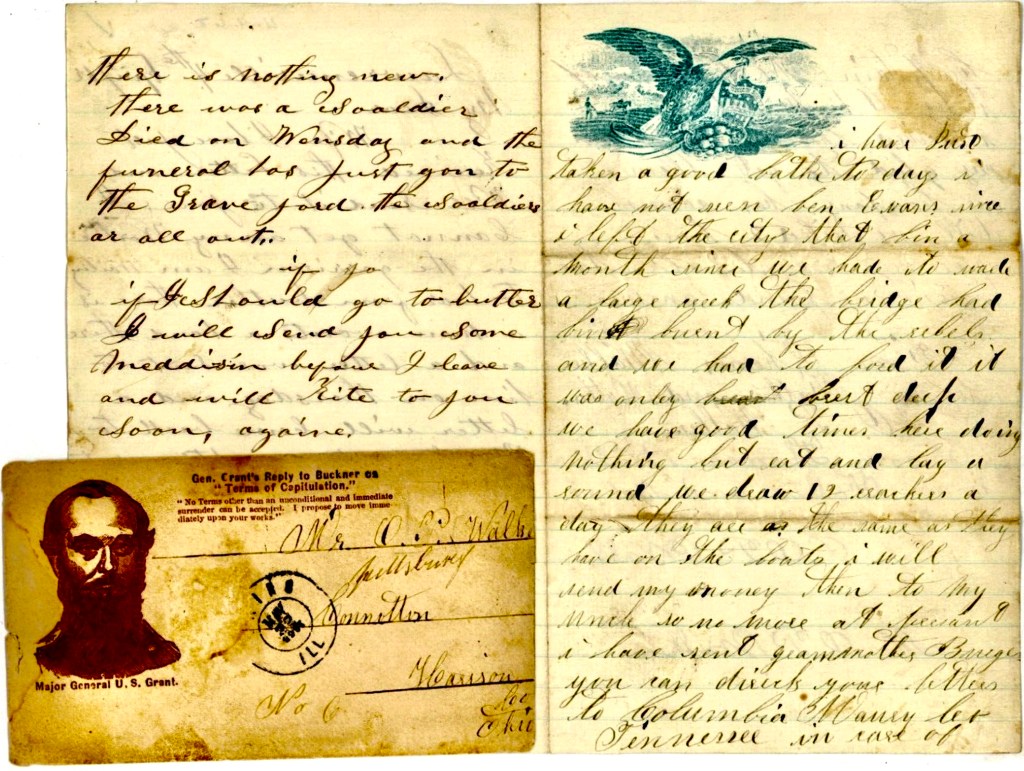 there is notting new.
there was a sooaldier
Died on Wensday and the
funeral has just gon to
the Grave jord. the sooaldiers
ar all out..
if yo
if I Should go to butter
I will send you some
meddisin before I leave
and will Rite to you
soon, againe.
i have Just
taken a good bathe to day i
have not sen ben Evans since
i left the city that bin a
month since we hade to wade
a large creek the bridge had
bin burnt by the rebels
and we had to ford it it
was only brest deep
we have good times here doing
nothing but eat and lay a
round we draw 12 crackers a
day they are as the same as they
have on the boats i will
send my money then to my
uncle so no more at presant
i have sent grandmother
you can direck your letters
to Columbia Maury Co
Tennessee in care of
Gen. Grant's Reply to Buckner on
"Terms of Capitulation."
"No Terms other than an unconditional and immediate
surrender can be accepted. I propose to move imme-
diately upon your works."
Mr O. P.
Connotton
Harison
Co
Ohio
No 6
ILL
Major General U. S. Grant.